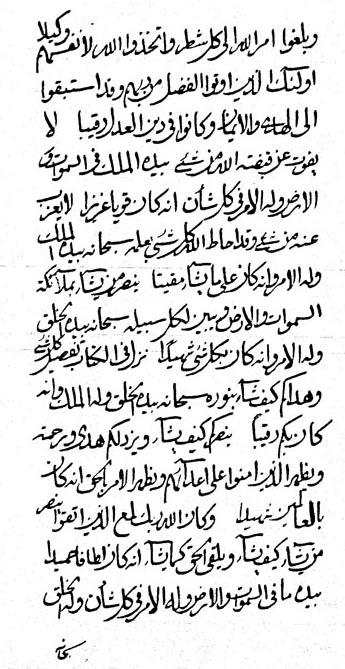 وبلغوا امر الله الى كل شطر واتخذوا الله لانفسهم وكيلا
اولئك الذين اوتوا الفضل من ربهم وقد استبقوا
الى الهدى والايمان وكانوا في دين العدل رقيبا لا
يفوت عن قبضته الله من شيء بيده الملك في السموات و
الارض وله الامر في كل شأن انه كان قويا عزيزا لا يعزب
عنه من شيء وقد احاط الله كل شيء بعلمه سبحانه بيده الملك
وله الامر وانه كان على ما يشاء مقيتا ينصر من يشاء بملآئكة
السموات والارض ويبين لكل سبيله سبحانه بيده الخلق
وله الامر وانه كان بكل شيء شهيدا نزل في الكتاب تفصيل كل شيء
وهداكم كيف يشاء بنوره سبحانه بيده الخلق وله الملك وانه
كان بكم رقيبا ينصركم كيف يشاء ويزدكم هدى ورحمة
ويظهر الذين امنوا على اعدائهم ويظهر الامر بالحق انه كان
بالعالمين شهيدا وكان الله ربك لمع الذين اتقوا ينصر
من يشاء كيف يشاء ويلقى الحق كما يشاء انه كان لطافا حميدا
بيده ما في السموات والارض وله الامر في كل شأن وله الخلق